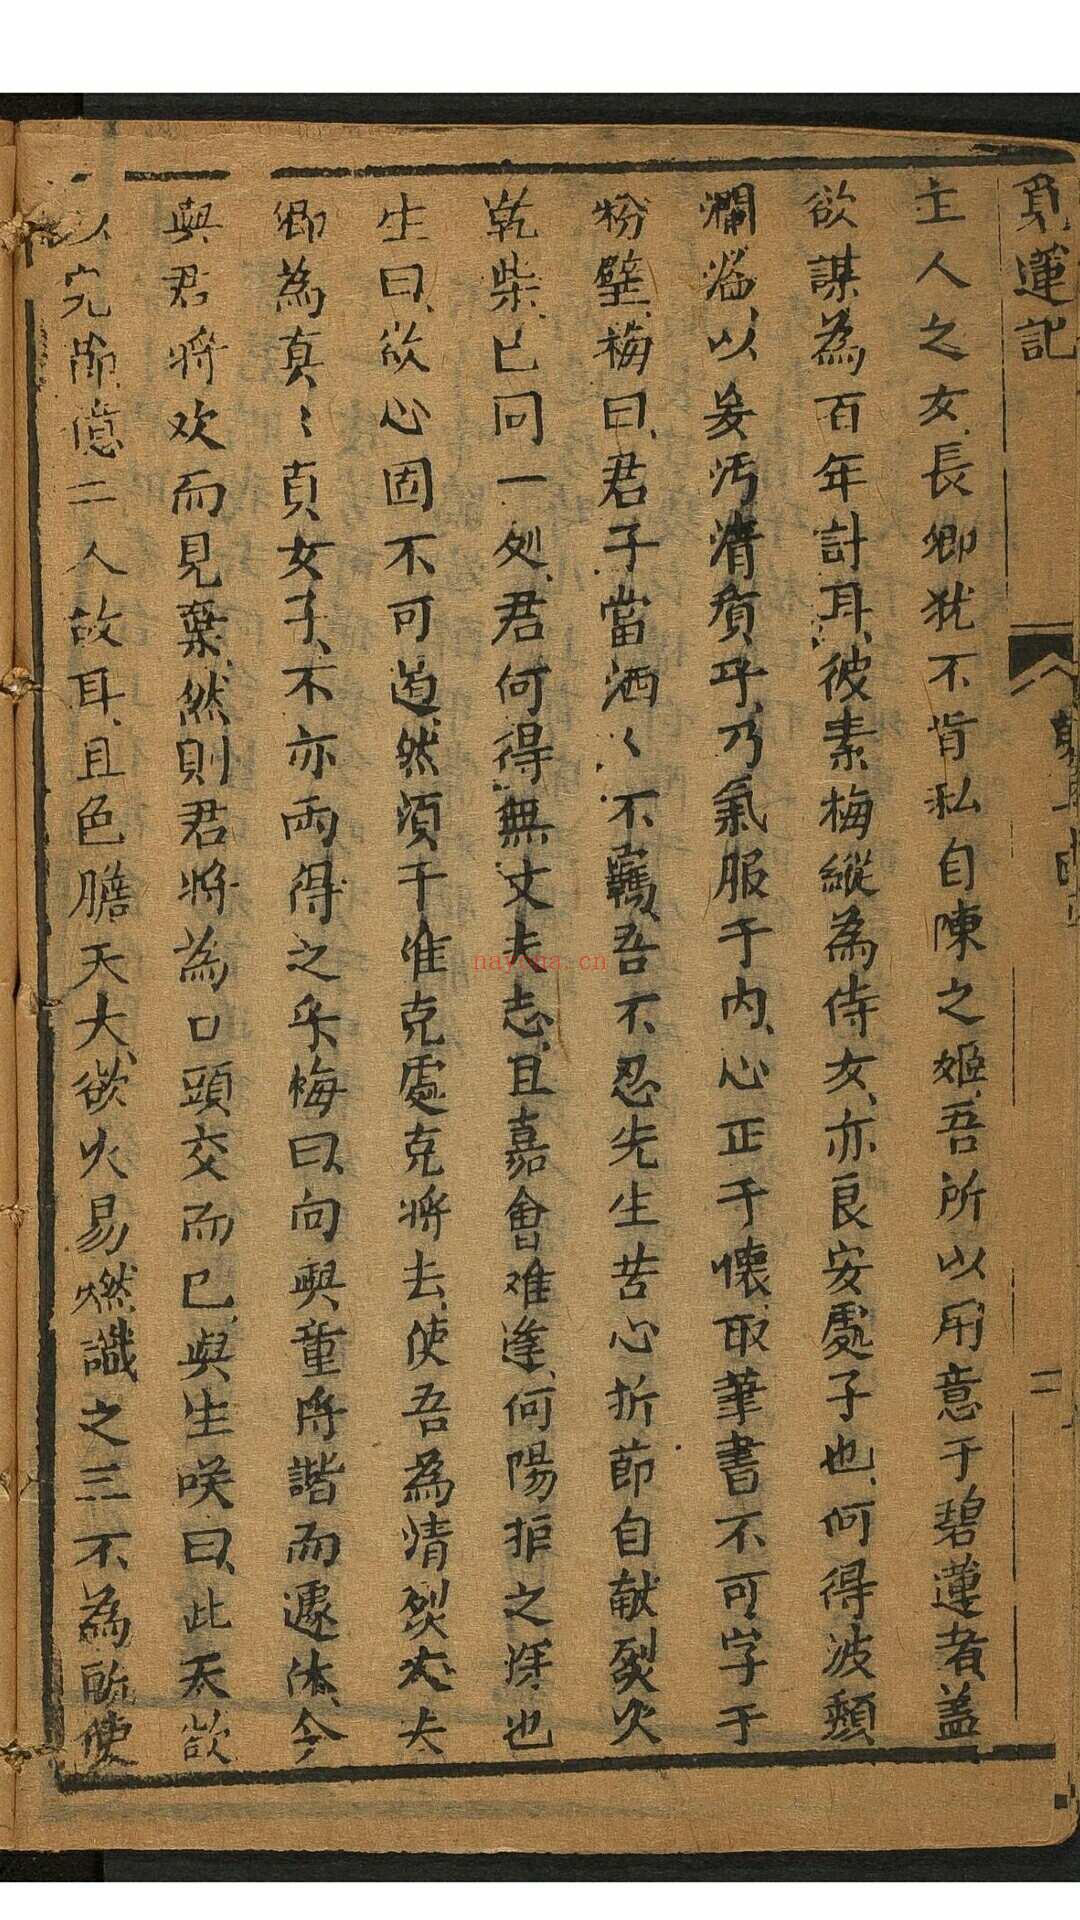 覓蓮記
主人之女、長卿犹不肯私自陳之姬、吾所以用意于碧蓮者、盖
欲謀為百年計耳、彼素梅縱為侍女、亦良安處子也、何得波頽
瀾溢、以妄汚清貧乎、乃氣服于内、心正于懐、取筆書不可字于
粉壁、梅曰、君子當洒〻不羈、吾不忍先生苦心折節自献、烈火
乾柴、已同一处、君何得無丈夫志、且嘉會难逢、何陽拒之深也
生曰、欲心固不可遒、然須于难克處克將去、使吾為清烈丈夫
卿為真〻貞女子、不亦両得之乎、梅曰、向與童将諧而遽休、今
與君将欢而見棄、然則君将為口頭交而已、與生咲曰、此天欲
以完節億二人故耳、且色膽天大、欲火易燃、識之三不為所使
二
nayona.cn